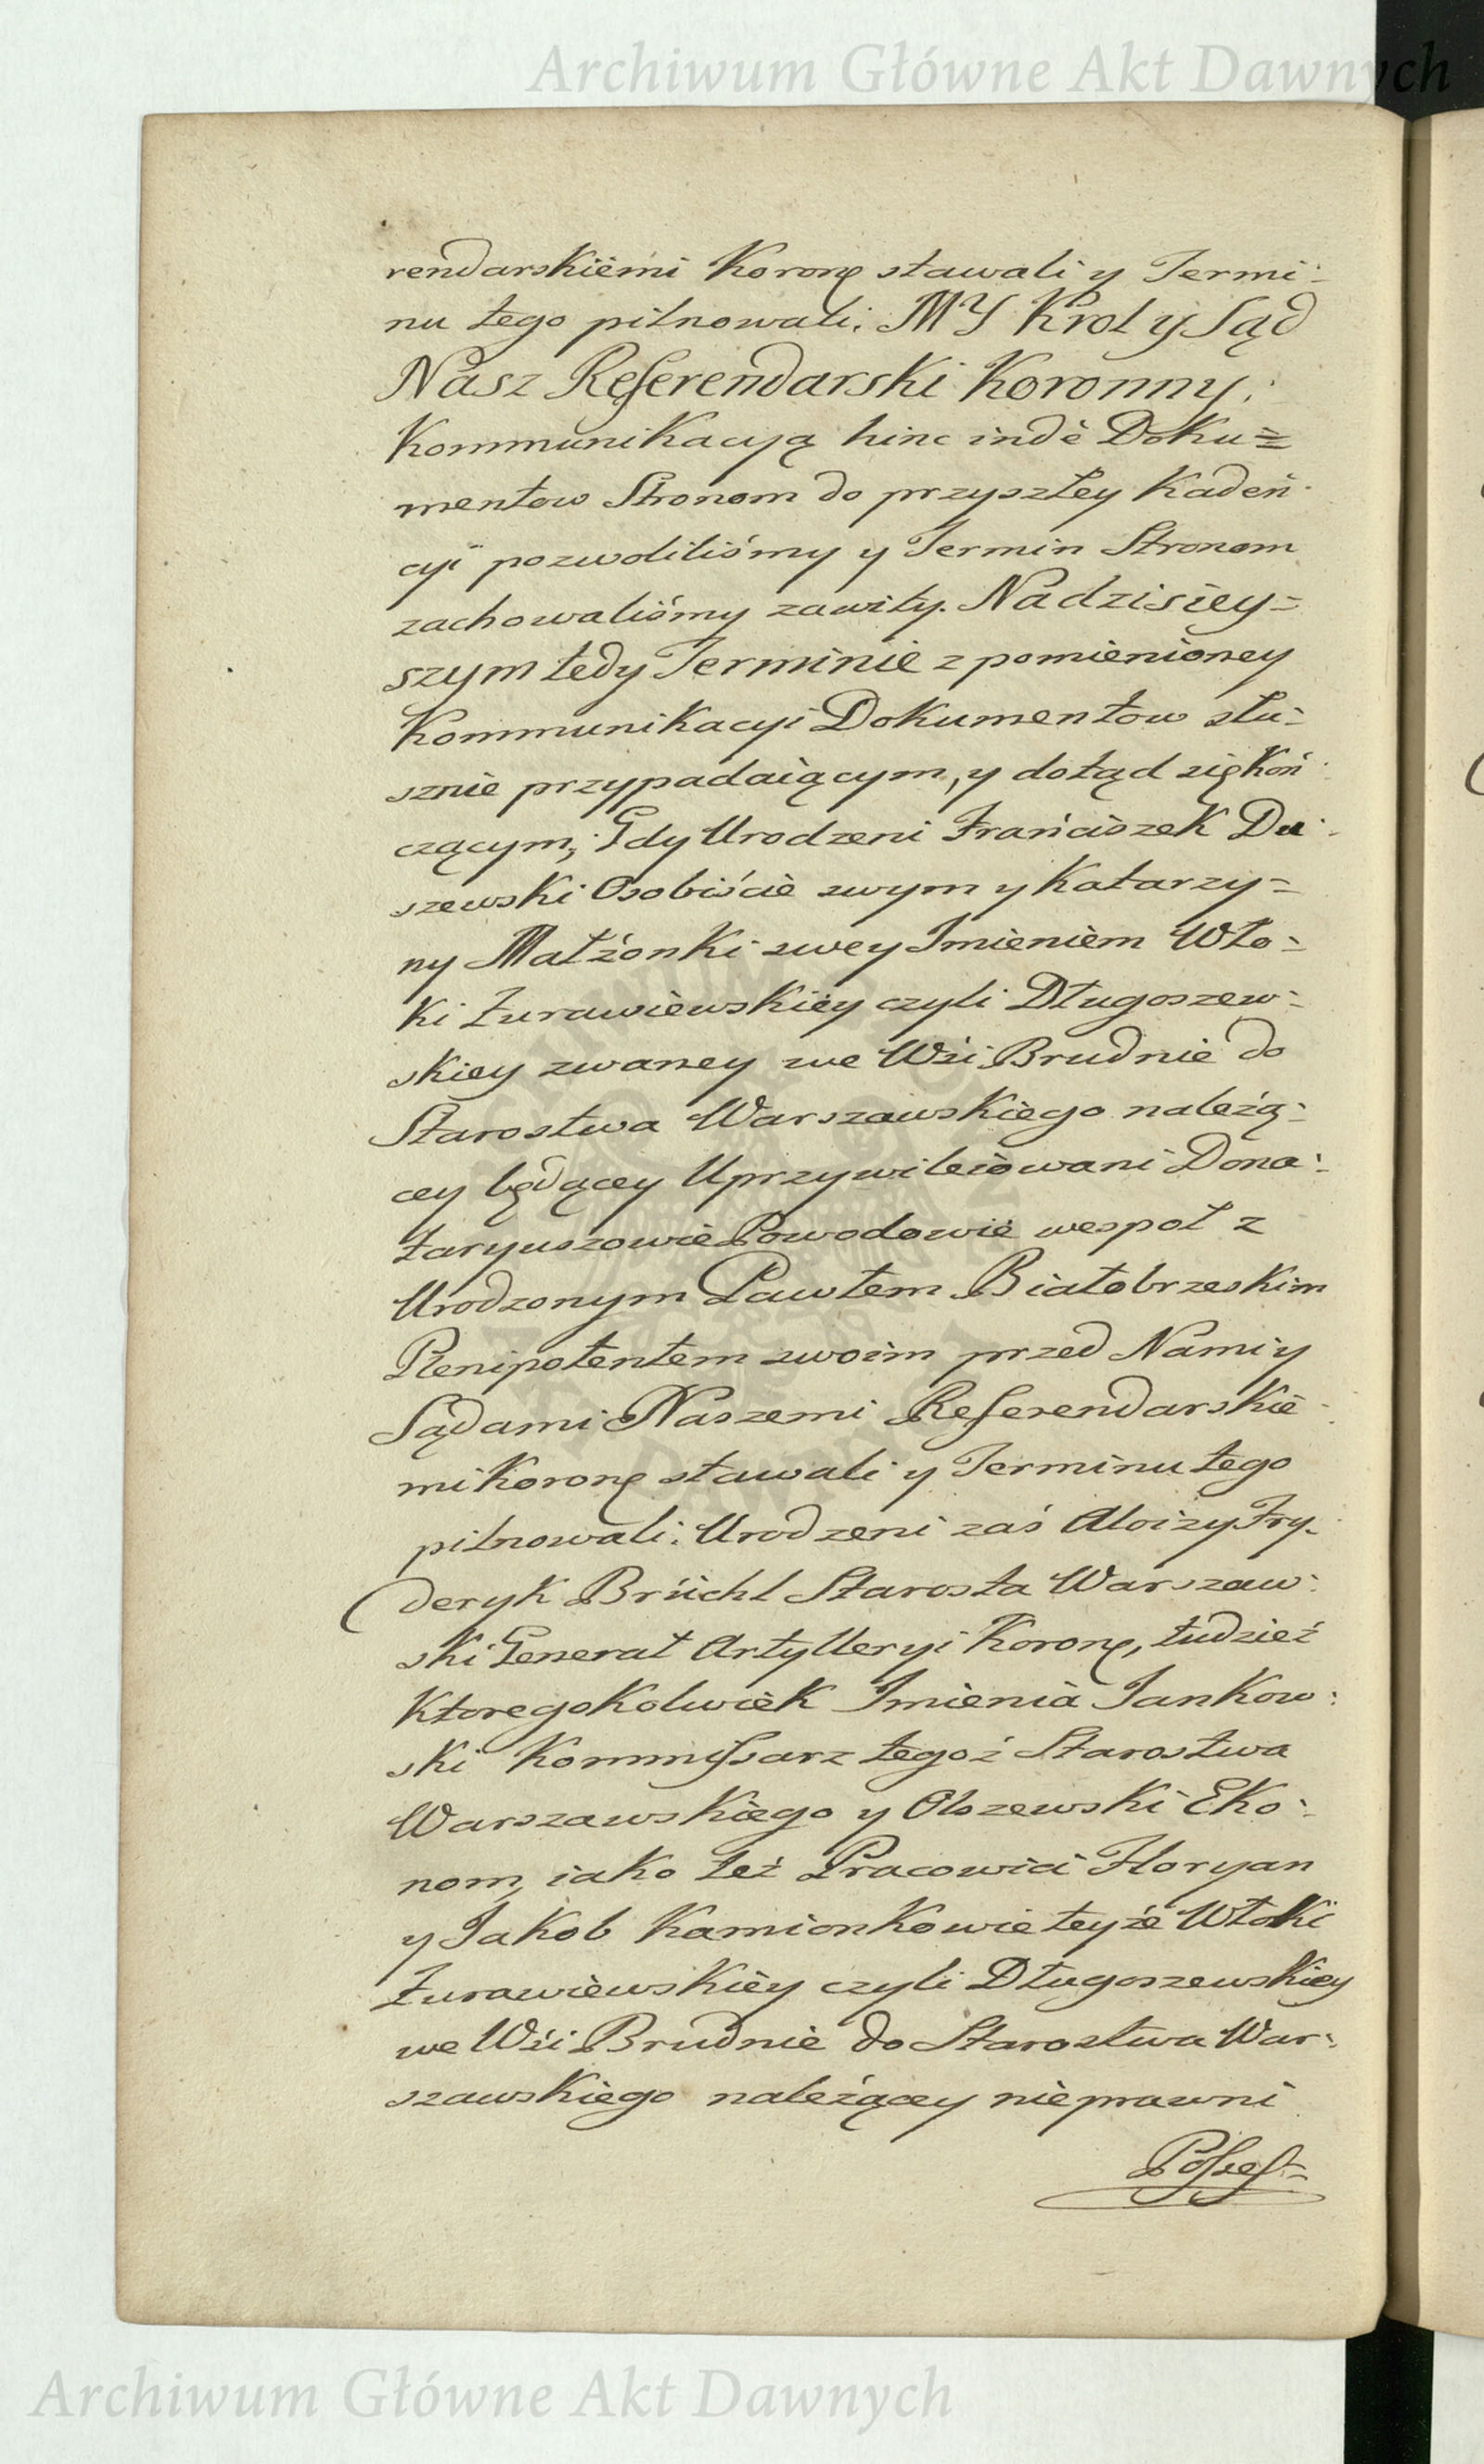 Archiwum Główne Akt Dawnych
rendarskiemi Koronę stawali y Termi-
nu tego pilnowali. MY Krol y Sąd
Nasz Referendarski Koronny,
Kommunikacyą hinc indè Doku=
mentow Stronom do przyszłey Kaden-
cyi pozwoliliśmy y Termin Stronom
zachowaliśmy zawity. Na dzisiey=
szym tedy Terminie z pomienioney
Kommunikacyi Dokumentow słu-
sznie przypadaiącym, y dotąd się koń-
czącym, Gdy Urodzeni Franciszek Du-
szewski Osobiście swym y Katarzy=
ny Małżonki swey Imieniem Wło-
ki Żurawiewskiey czyli Długoszew-
skiey zwaney we Wśi Brudnie do
Starostwa Warszawskiego należą-
cey będącey Uprzywileiowani Dona-
taryuszowie Powodowie wespoł z
Urodzonym Pawłem Białobrzeskim
Plenipotentem swoim przed Nami y
Sądami Naszemi Referendarskie-
mi Koronę stawali y Terminu tego
pilnowali. Urodzeni zaś Aloizy Fry-
deryk Brüchl Starosta Warszaw-
ski Generał Artylleryi Koronę, tudzież
Ktoregokolwiek Imienia Jankow-
ski Kommissarz tegoż Starostwa
Warszawskiego y Olszewski Eko-
nom, iako też Pracowici Floryan
y Jakob Kamionkowie teyże Włoki
Żurawiewskiey czyli Długoszewskiey
we Wśi Brudnie do Starostwa War-
szawskiego należącey nieprawni
Possess=
Archiwum Główne Akt Dawnych